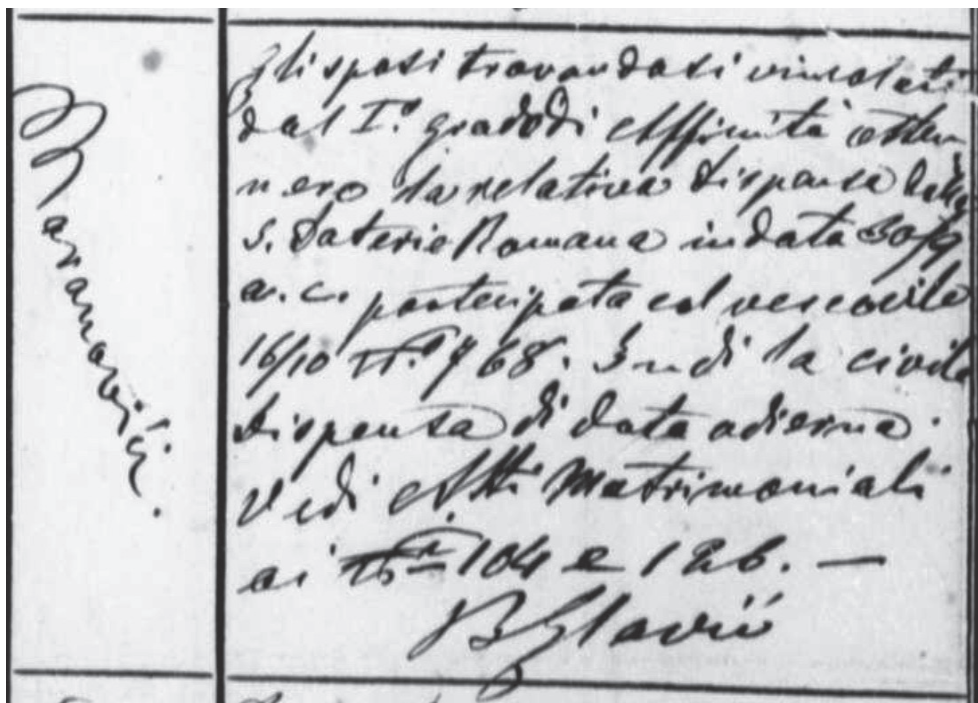 Maranović.
Gli sposi trovandosi vincolati
dal I.º grado di Affinità otten
nero la relativa dispensa dalla
S. Dateria Romana in data 30/9
a. c. partecipata col vescovile
16/10 N.º 768. Indi la civile
dispensa di data odierna.
Vedi Atti Matrimoniali
ai N.ri 104 e 126. —
B Glavić